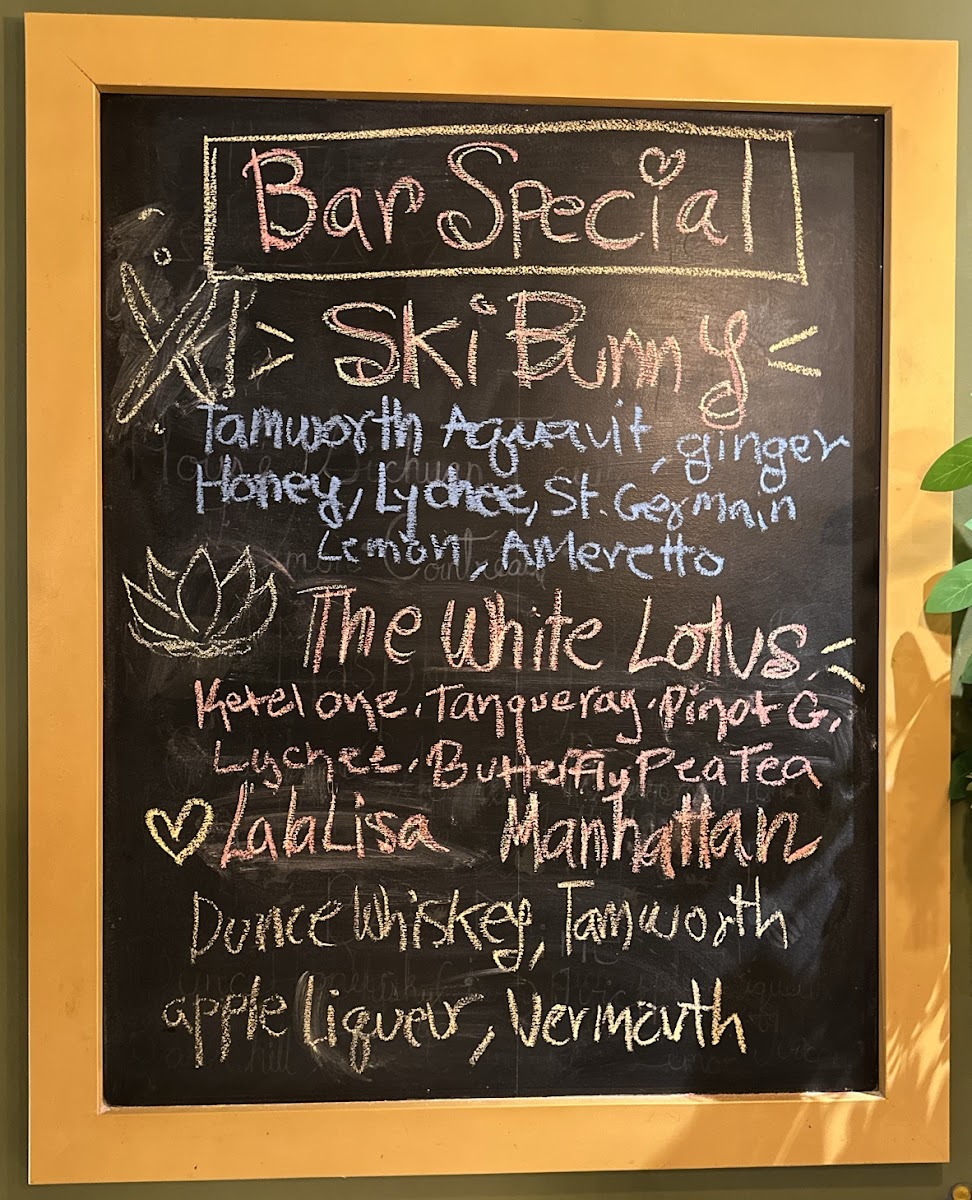 Bar Special
Ski Bunny
Tamworth Aquavit, ginger
Honey, Lychee, St. Germain
Lemon, Ameretto
The White Lotus
Ketel one, Tanqueray, Pinot G,
Lychee, Butterfly Pea Tea
LaLa Lisa Manhattan
Dunce Whiskey, Tamworth
apple liqueur, Vermouth